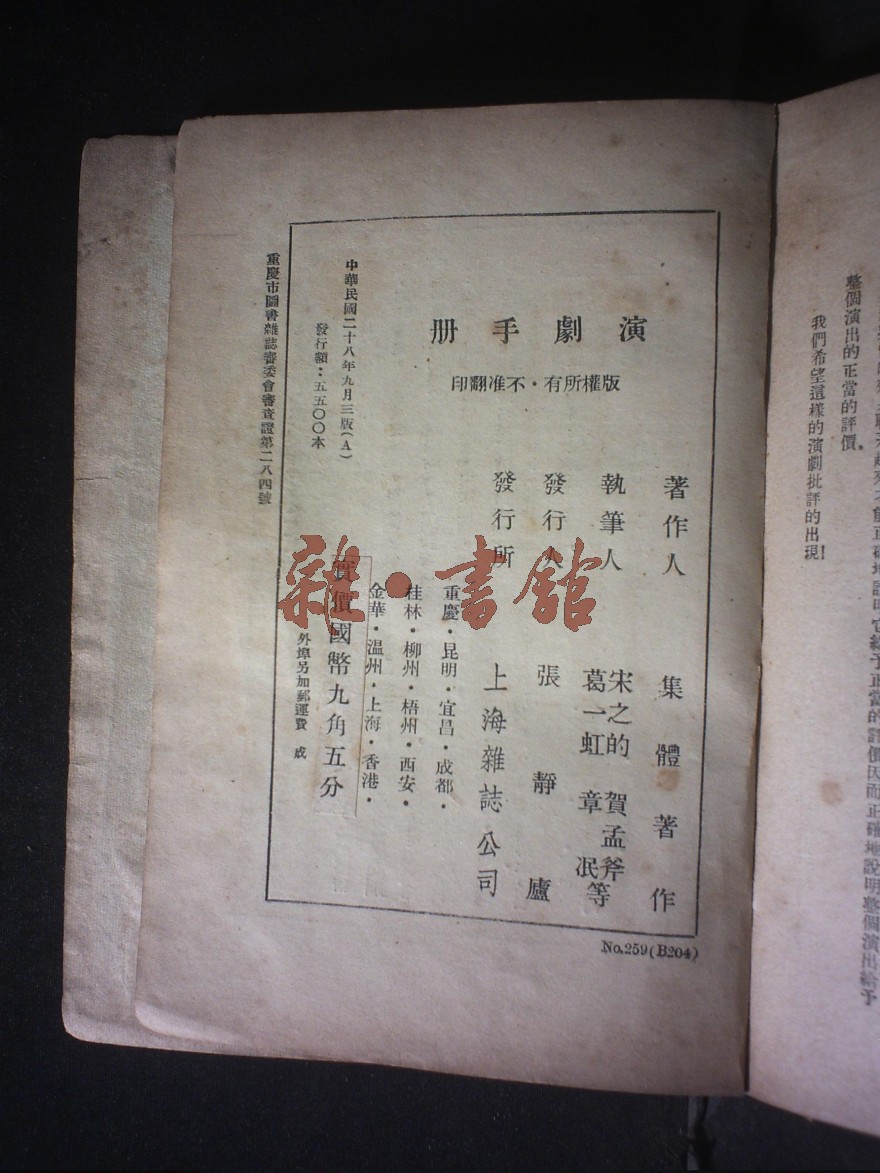 整個演出的正當的評價。
我們希望這樣的演劇批評的出現!
演劇手册
版權所有・不准翻印
著作人 集體著作
執筆人 宋之的 賀孟斧
葛一虹 章泯等
發行人 張靜廬
發行所 上海雜誌公司
重慶・昆明・宜昌・成都・
桂林・柳州・梧州・西安・
金華・温州・上海・香港・
實價國幣九角五分
外埠另加郵運費 成
中華民國二十八年九月三版(A)
發行額:五五〇〇本
重慶市圖書雜誌審委會審查證第二八四號
No.259(B204)
雜・書館